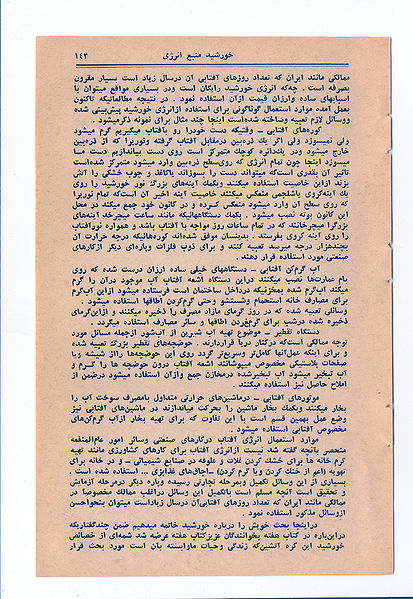 خورشید منبع انرژی ۱۴۳
ممالکی مانند ایران که تعداد روزهای آفتابی آن درسال زیاد است بسیار مقرون
بصرفه است . چه‌که انرژی خورشید رایگان است ودر بسیاری مواقع میتوان با
اسبابهای ساده وارزان قیمت ازآن استفاده نمود . در نتیجه مطالعاتیکه تاکنون
بعمل آمده موارد استعمال گوناگونی برای استفاده ازانرژی خورشید پیش‌بینی شده
ووسائل لازم تعبیه وساخته شده‌است اینجا چند مثال برای نمونه ذکرمیشود .
کوره‌های آفتابی ــ وقتیکه دست خودرا رو بآفتاب میگیریم گرم میشود
ولی نمیسوزد ولی اگر یک ذره‌بین درمقابل آفتاب گرفته ونوریرا که از ذره‌بین
خارج میشود ودر یک‌دائره کوچک متمرکز است روی دست بیاندازیم دست ما
میسوزد اینجا چون تمام انرژی که روی‌سطح ذره‌بین وارد میشود متمرکز شده‌است
تاثیر آن بقدری است‌که میتواند دست را بسوزاند یاکاغذ و چوب خشکی را آتش
بزند ازاین خاصیت استفاده میکنند وبکمک آینه‌های بزرگ نور خورشید را روی
یک آینه‌کروی یاشلجمی منعکس میکنند خاصیت آینه اخیر آن است‌که تمام نوریرا
که روی سطح آن وارد میشود منعکس کرده و در کانون خود جمع میکند در محل
این کانون بوته نصب میشود . بکمک دستگاههائیکه مانند ساعت میچرخد آینه‌های
بزرگرا میچرخانند که در تمام ساعات روز مواجه با آفتاب باشد و همواره نورآفتاب
را روی آینه کروی بفرستد . بدینسان موفق شده‌اند کوره‌هائیکه درجه حرارت آن
بچندهزار درجه میرسد تعبیه کنند و برای ذوب فلزات وپاره‌ای دیگر ازکارهای
صنعتی مورد استفاده قرار دهند .
آب گرم‌کن آفتابی ــ دستگاههای خیلی ساده ارزان درست شده که روی
بام عمارت‌ها نصب میکنند دراین دستگاه اشعه آفتاب آب موجود درآن را گرم
میکند آب‌گرم شده بمخزنیکه درداخل ساختمان است فرستاده میشود ازاین آب‌گرم
برای مصارف خانه استحمام وشستشو وحتی گرم‌کردن اطاقها استفاده میشود .
وسائلی تعبیه شده که در روز گرمای مازاد مصرف را ذخیره میکنند و ازاین‌گرمای
ذخیره شده درشب برای گرم‌کردن اطاقها و سائر مصارف استفاده میگردد .
دستگاه تقطیر ــ موضوع تهیه آب شیرین از آب‌شور ازجمله مسائل مورد
توجه ممالکی است‌که درکنار دریا قراردارند . حوضچه‌های تقطیر بزرگ تعبیه شده
و برای اینکه عمل‌آنها کامل‌تر وسریع‌تر گردد روی این حوضچه‌ها رااز شیشه ویا
صفحات پلاستیکی مخصوص میپوشانند اشعه آفتاب درون حوضچه ها را گرم و
آب تبخیر میشود آب تبخیرشده درمخازن جمع وازآن استفاده میشود درضمن از
املاح حاصل نیز استفاده میکنند .
موتورهای آفتابی ــ درماشین‌های حرارتی متداول بامصرف سوخت آب را
بخار میکنند وبکمک بخار ماشین را بحرکت میاندازند در ماشین‌های آفتابی نیز
وضع عمل بهمین قسم است با این تفاوت که برای تهیه بخار ازآب گرم‌کن‌های
مخصوص آفتابی استفاده میشود .
موارد استعمال انرژی آفتاب درکارهای صنعتی وسائر امور عام‌المنفعه
منحصر بآنچه گفته شد نیست ازانرژی آفتاب برای کارهای کشاورزی مانند تهیه
گرم خانه ها برای خشک کردن غلات و علوفه در صنایع شیمیائی ــ و در خانه برای
تهویه (اعم از خنک کردن ویا گرم کردن) ــ اجاق‌های غذاپزی ... استفاده شده است .
بسیاری از این وسائل تکمیل وبمرحله تجارتی رسیده وپاره دیگر درمرحله آزمایش
و تحقیق است آنچه مسلم است باتکمیل این وسائل دراغلب ممالک مخصوصا در
ممالکی مانند ایران که تعداد روزهای آفتابی‌آن درسال زیاداست میتوان بنحواحسن
ازوسائل مذکور استفاده نمود .
دراینجا بحث خویش را درباره خورشید خاتمه میدهیم ضمن چندگفتاریکه
دراین‌باره در کتاب هفته بخوانندگان عزیزکتاب هفته عرضه شد شمه‌ای از خصائص
خورشید این کره آتشین‌که زندگی وحیات ماوابسته بآن است مورد بحث قرار